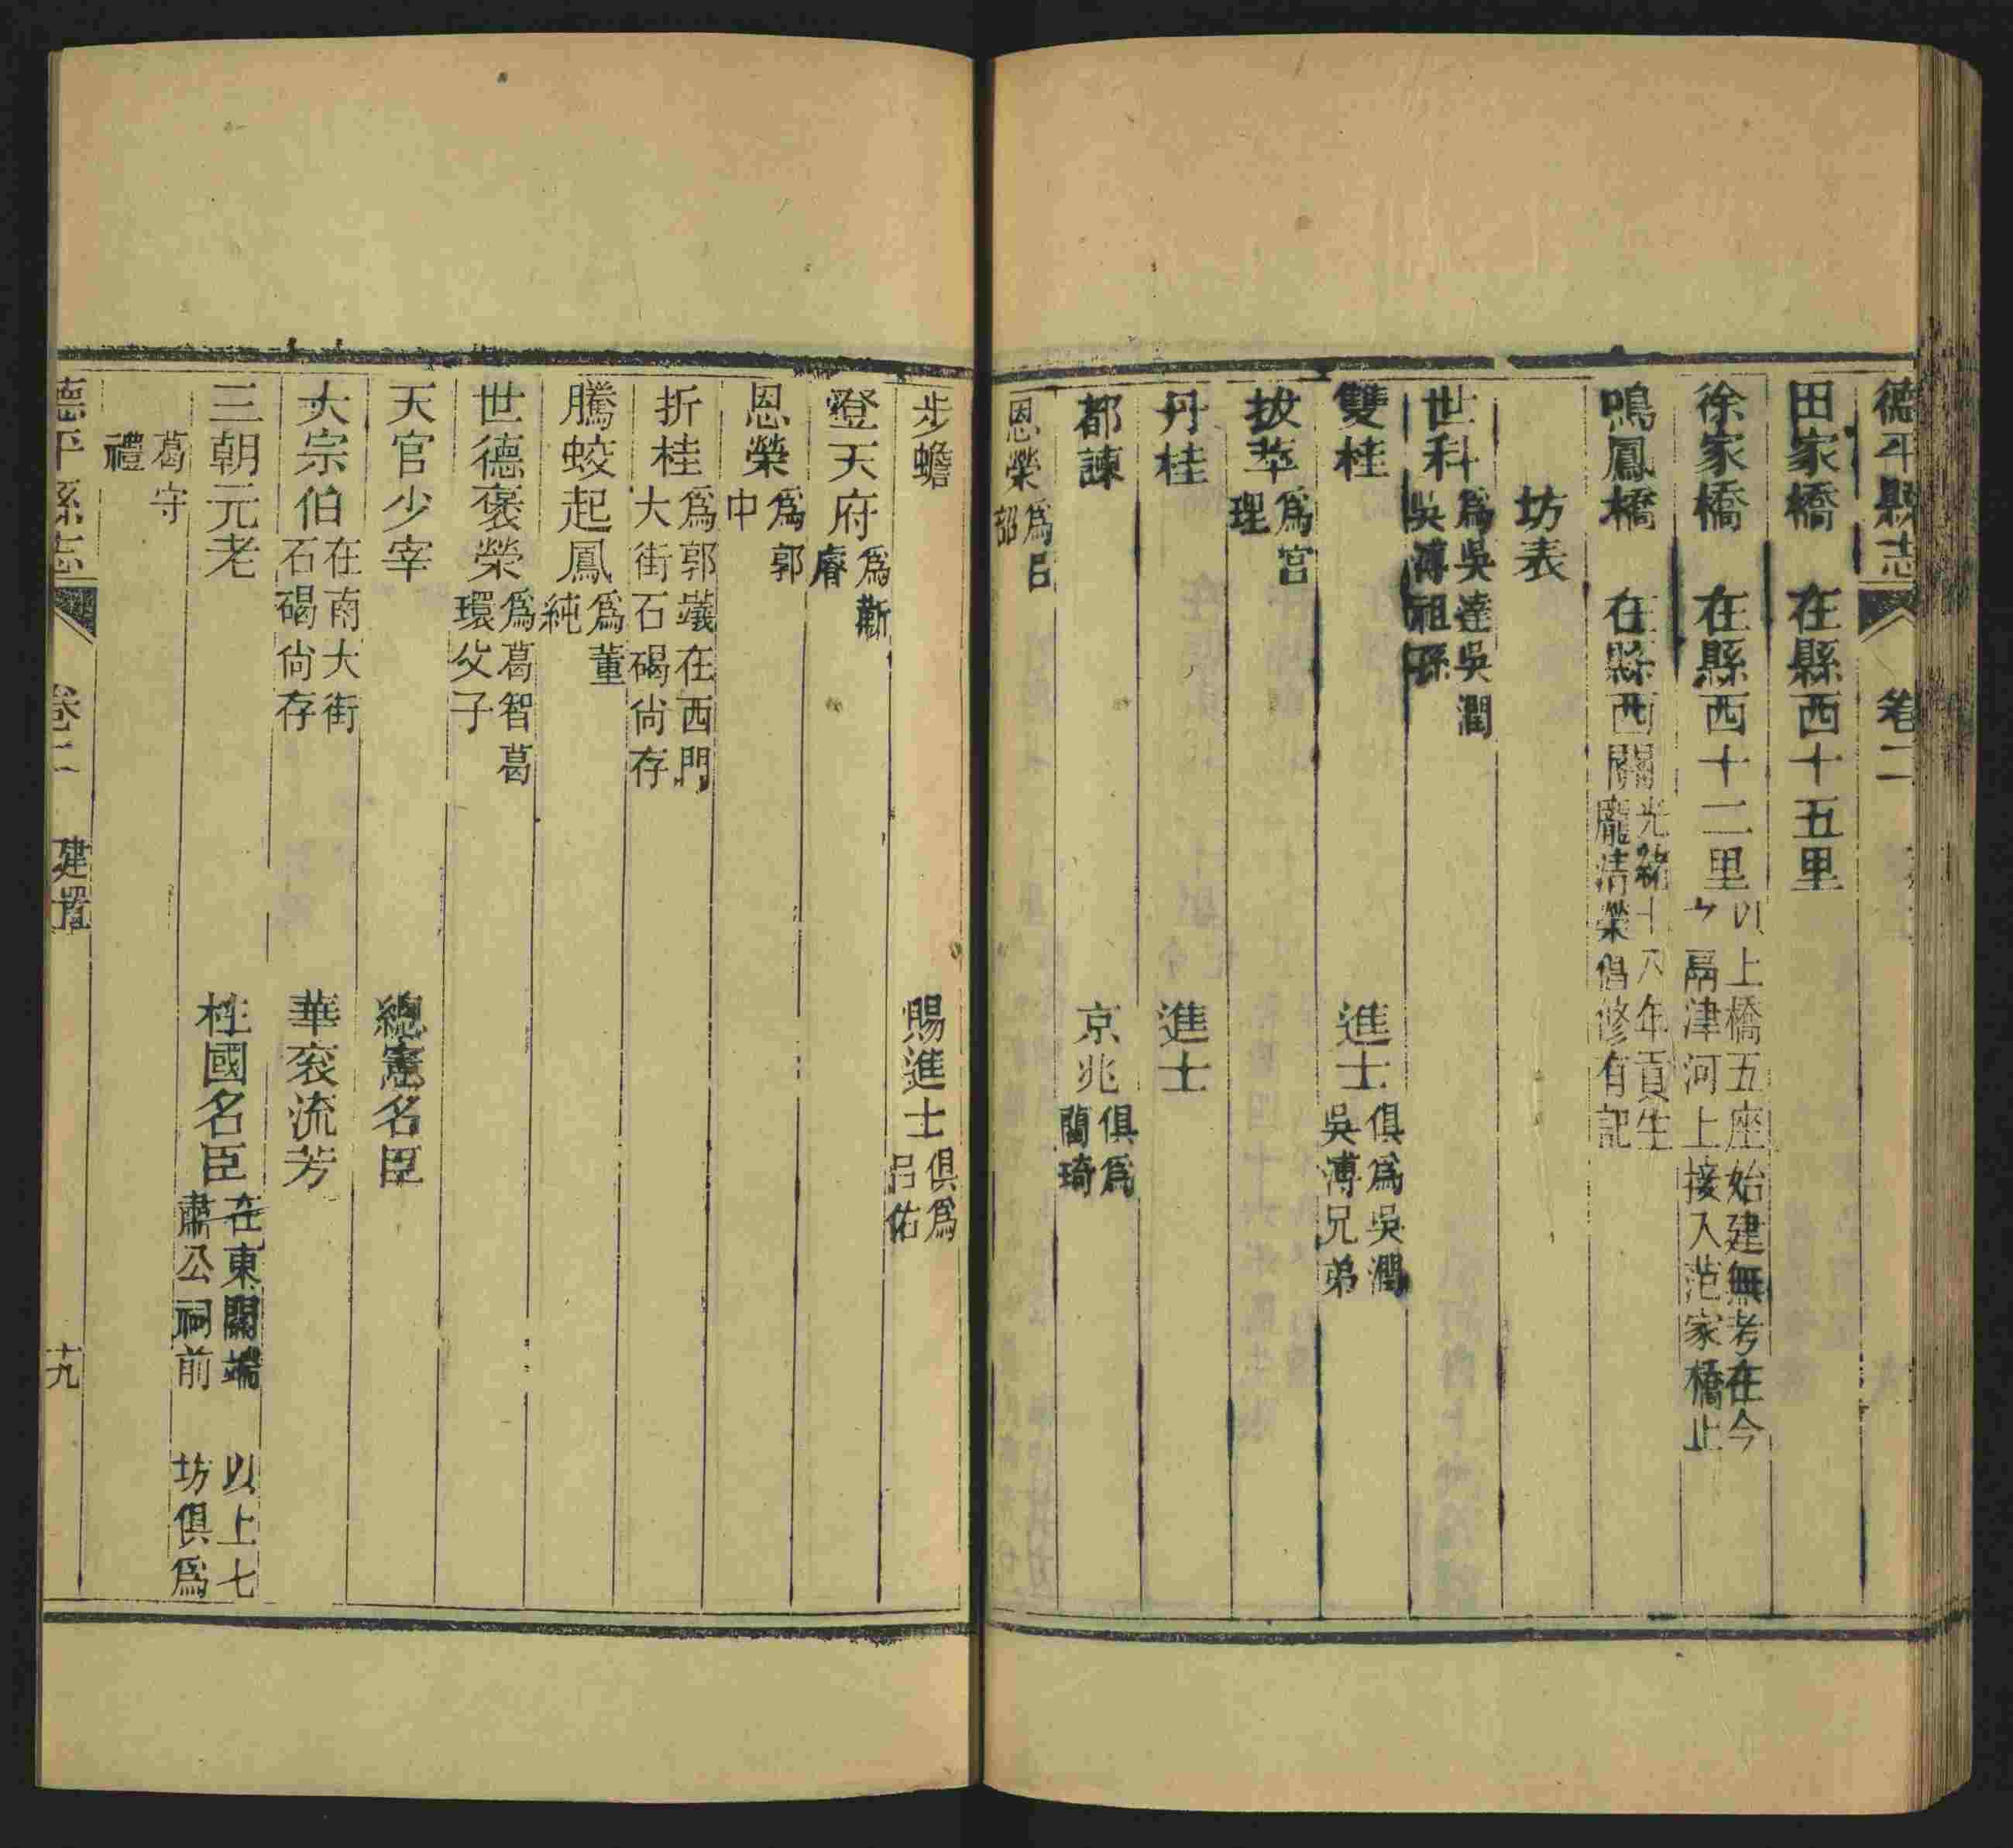 德平縣志 卷二
田家橋 在縣西十五里
徐家橋 在縣西十二里 以上橋五座始建無考在今
鬲津河上接入范家橋止
鳴鳳橋 在縣西關 光緒十八年貢生
龐清榮倡修有記
坊表
世科 爲吳達吳潤
吳溥祖孫
雙桂 進士 俱爲吳潤
吳溥兄弟
拔萃 爲宮
理
丹桂 進士
都諫 京兆 俱爲
藺琦
恩榮 爲呂
韶
步蟾 賜進士 俱爲
呂佑
登天府 爲靳
睿
恩榮 爲郭
中
折桂 爲郭䥴在西門
大街石碣尚存
騰蛟起鳳 爲董
純
世德褒榮 爲葛智葛
環父子
天官少宰 總憲名臣
大宗伯 在南大街
石碣尚存 華衮流芳
三朝元老 柱國名臣 在東關端
肅公祠前 以上七
坊俱爲
葛守
禮
德平縣志 卷二 建置 十九